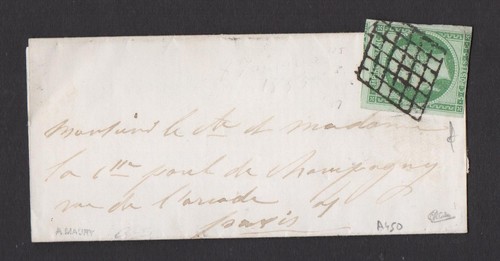 Monsieur le Cte et madame
la Ctesse paul de Champagny
rue de l'arcade
paris
A MAURY
A450